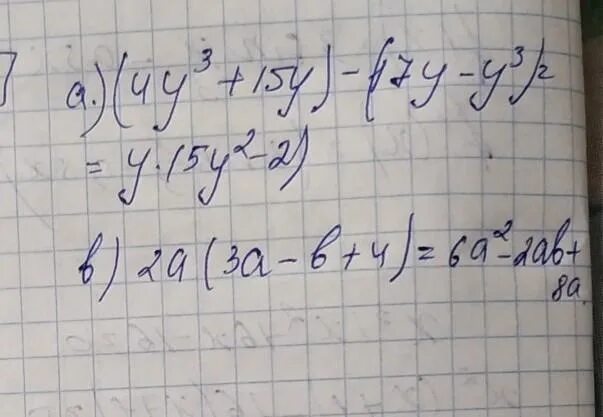 а.) (4y³ + 15y) - (17y - y³) =
= y · (5y² - 2)
в) 2a (3a - в + 4) = 6a² - 2ав +
8a